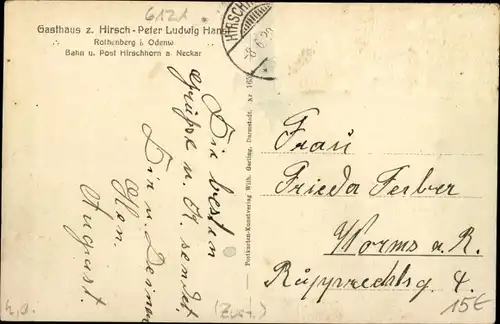 6121
Gasthaus z. Hirsch - Peter Ludwig Han
Rothenberg i. Odenw
Bahn u. Post Hirschhorn a. Neckar
HIRSCHH
Die besten
Grüße u. K. sendet
Dir u. Deiner
August.
Postkarten-Kunstverlag Wilh. Gerling, Darmstadt. Nr. 165
Frau
Frieda Ferber
Worms a. R.
4.
15€